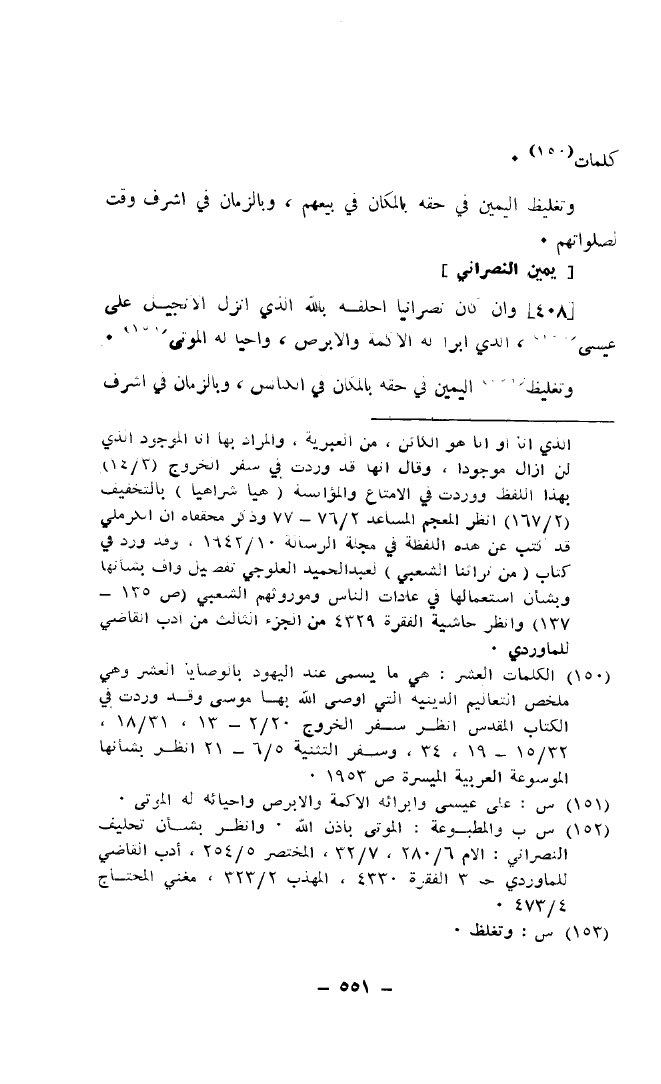 كلمات(١٥٠) ٠
وتغليظ اليمين في حقه بالمكان في بيعهم ، وبالزمان في اشرف وقت
لصلواتهم ٠
[ يمين النصراني ]
[٤٠٨] وان كان نصرانيا احلفـــه بالله الذي انزل الانجيـــل على
عيسى ، الذي ابرأ له الاكمة والابرص ، واحيا له الموتى ٠
وتغليظ اليمين في حقه بالمكان في الكنائس ، وبالزمان في اشرف
الذي انا او انا هو الكائن ، من العبرية ، والمراد بها انا الموجود الذي
لن ازال موجودا ، وقال انها قد وردت في سفر الخروج (١٤/٣)
بهذا اللفظ ووردت في الامتاع والمؤانسة ( هيا شراهيا ) بالتخفيف
(١٦٧/٢) انظر المعجم المساعد ٧٦/٢ – ٧٧ وذكر محققاه ان الكرملي
قد كتب عن هذه اللفظة في مجلة الرسالة ١٦٤٢/١٠ ، وقد ورد في
كتاب ( من تراثنا الشعبي ) لعبدالحميد العلوجي تفصيل واف بشأنها
وبشأن استعمالها في عادات الناس وموروثهم الشعبي (ص ١٣٥ –
١٣٧) وانظر حاشية الفقرة ٤٣٢٩ من الجزء الثالث من أدب القاضي
للماوردي ٠
(١٥٠) الكلمات العشر : هي ما يسمى عند اليهود بالوصايا العشر وهي
ملخص التعاليم الدينيه التي اوصى الله بهـــا موسى وقـــد وردت في
الكتاب المقدس انظـــر ســـفر الخروج ٢/٢٠ – ١٣ ، ١٨/٣١ ،
١٥/٣٢ – ١٩ ، ٣٤ ، وســـفر التثنية ٦/٥ – ٢١ انظـــر بشأنها
الموسوعة العربية الميسرة ص ١٩٥٣ ٠
(١٥١) س : على عيسى وابرائه الاكمة والابرص واحيائه له الموتى ٠
(١٥٢) س ب والمطبـــوعة : الموتى بأذن الله ٠ وانظـــر بشـــأن تحليف
النصراني : الام ٢٨٠/٦ ، ٣٢/٧ ، المختصر ٢٥٤/٥ ، أدب القاضي
للماوردي حـ ٣ الفقرة ٤٣٣٠ ، المهذب ٣٢٣/٢ ، مغني المحتـــاج
٤٧٣/٤ ٠
(١٥٣) س : وتغلظ ٠
– ٥٥١ –